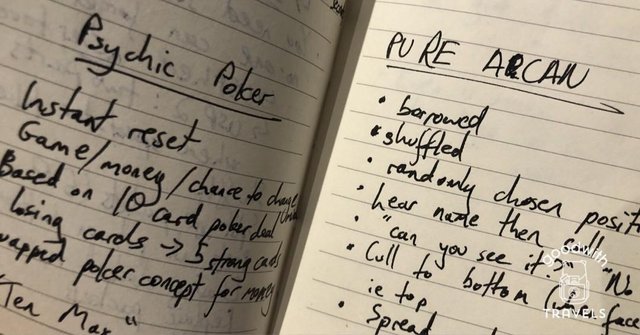 Psychic Poker
Instant reset
Game/money/chance to change
Based on 10 card poker deal
losing cards → 5 strong cards
wapped poker concept for money
"Ten Max"
PURE ARCAN
• borrowed
• shuffled
• randomly chosen posit
• hear name then cull
• "can you see it?" "No
• Cull to bottom face
ie top
• Spread
TRAVELS